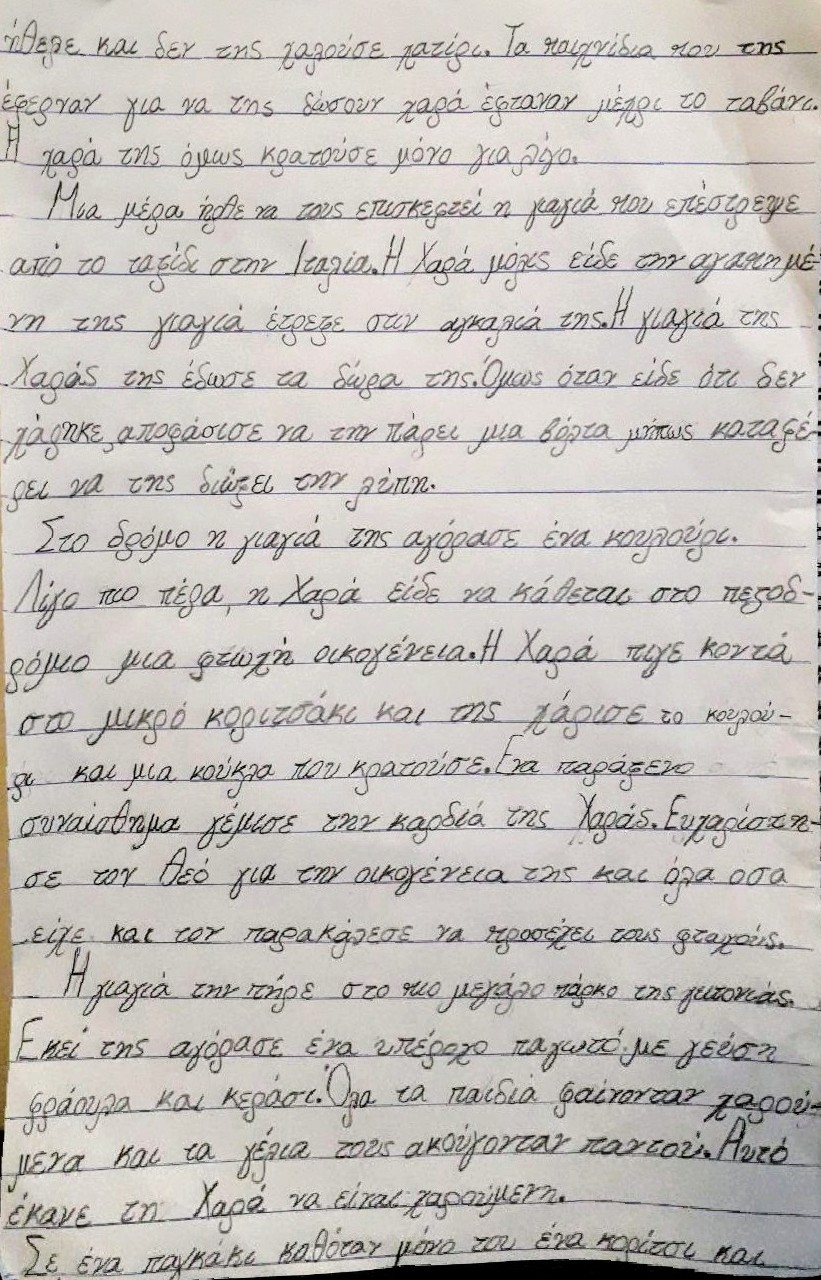 ήθελε και δεν της χαλούσε χατίρι. Τα παιχνίδια που της
έφερναν για να της δώσουν χαρά έφταναν μέχρι το ταβάνι.
Η χαρά της όμως κρατούσε μόνο για λίγο.
Μια μέρα ήρθε να τους επισκεφτεί η γιαγιά που επέστρεψε
από το ταξίδι στην Ιταλία. Η Χαρά μόλις είδε την αγαπημέ-
νη της γιαγιά έτρεξε στιν αγκαλιά της. Η γιαγιά της
Χαράς της έδωσε τα δώρα της. Όμως όταν είδε ότι δεν
χάρηκε, αποφάσισε να την πάρει μια βόλτα μήπως καταφέ-
ρει να της διώξει την λύπη.
Στο δρόμο η γιαγιά της αγόρασε ένα κουλούρι.
Λίγο πιο πέρα, η Χαρά είδε να κάθεται στο πεζοδ-
ρόμιο μια φτωχή οικογένεια. Η Χαρά πιγε κοντά
στο μικρό κοριτσάκι και της χάρισε το κουλού-
ρι και μια κούκλα που κρατούσε. Ένα παράξενο
συναίσθημα γέμισε την καρδιά της Χαράς. Ευχαρίστη-
σε τον Θεό για την οικογένεια της και όλα οσα
είχε και τον παρακάλεσε να προσέχει τους φταχούς.
Η γιαγιά την πήρε στο πιο μεγάλο πάρκο της γειτονιάς.
Εκεί της αγόρασε ένα υπέροχο παγωτό με γεύση
φράουλα και κεράσι. Όλα τα παιδιά φαίνονταν χαρού-
μενα και τα γέλια τους ακούγονταν παντού. Αυτό
έκανε τη Χαρά να είναι χαρούμενη.
Σε ένα παγκάκι καθόταν μόνο του ένα κορίτσι και